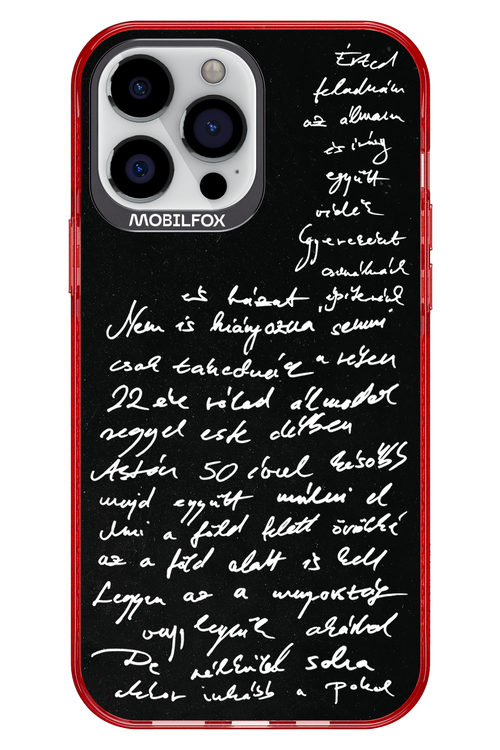 MOBILFOX
Érted
feladnám
az álmaim
és így
együtt
Gyerekeket
csinálnánk
és házat építenénk
Nem is hiányozna semmi
csak takednéz a rejem
22 éve rólad álmodok
reggel este délben
Aztán 50 évvel később
majd együtt múlni el
Ami a föld felett örökké
az a föld alatt is kell
Legyen az a mennyország
vagy legyünk akárhol
De nélküled soha
akkor inkább a pokol